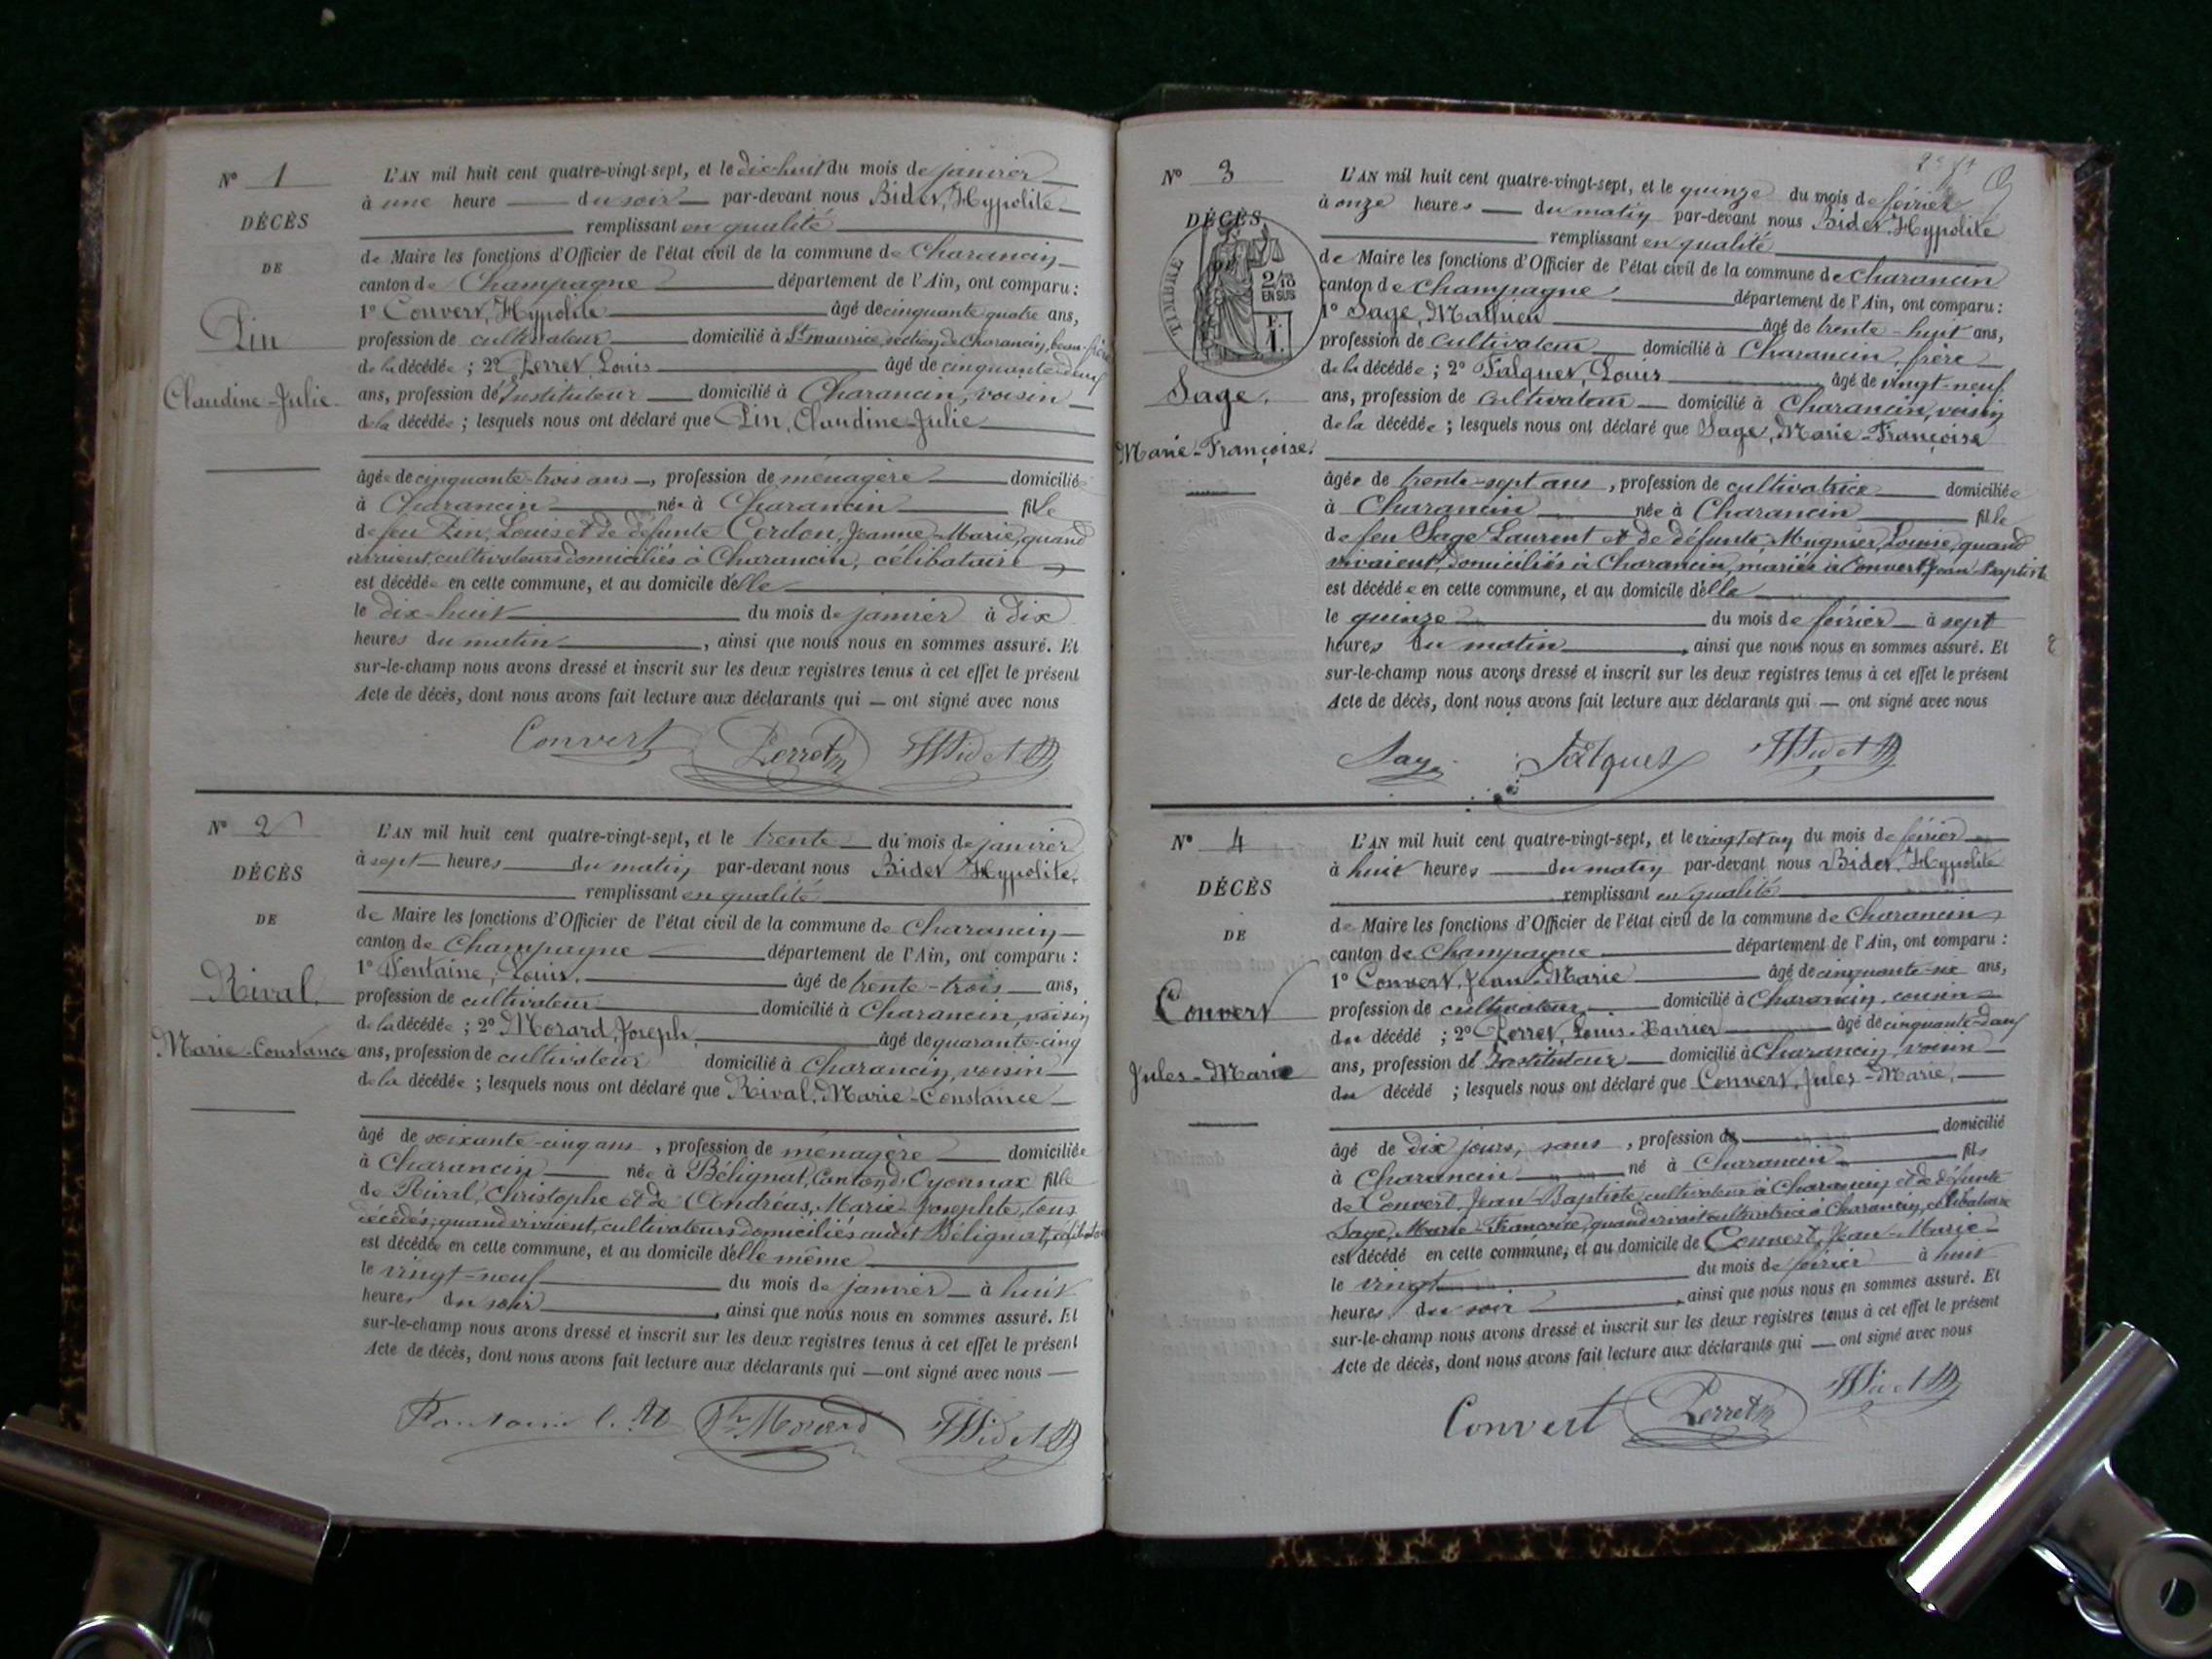 N° 1
DÉCÈS
DE
Pin
Claudine-Julie
L'AN mil huit cent quatre-vingt-sept, et le dix-huit du mois de janvier
à une heure du soir par-devant nous Bidet, Hypolite
remplissant en qualité
de Maire les fonctions d'Officier de l'état civil de la commune de Charancin
canton de Champagne département de l'Ain, ont comparu :
1° Convert, Hypolite âgé de cinquante quatre ans,
profession de cultivateur domicilié à St maurice, section de Charancin, beau-frère
de la décédée ; 2° Perret, Louis âgé de cinquante-deux
ans, profession d'Instituteur domicilié à Charancin, voisin
de la décédée ; lesquels nous ont déclaré que Pin, Claudine-Julie
âgée de cinquante-trois ans, profession de ménagère domiciliée
à Charancin née à Charancin fille
de feu Pin, Louis et de défunte Cerdon, Jeanne-Marie, quand
vivaient, cultivateurs domiciliés à Charancin, célibataire
est décédée en cette commune, et au domicile d'elle
le dix-huit du mois de janvier à dix
heures du matin, ainsi que nous nous en sommes assuré. Et
sur-le-champ nous avons dressé et inscrit sur les deux registres tenus à cet effet le présent
Acte de décès, dont nous avons fait lecture aux déclarants qui — ont signé avec nous
Convert Perret Bidet
N° 2
DÉCÈS
DE
Rival
Marie-Constance
L'AN mil huit cent quatre-vingt-sept, et le trente du mois de janvier
à sept heures du matin par-devant nous Bidet Hypolite,
remplissant en qualité
de Maire les fonctions d'Officier de l'état civil de la commune de Charancin
canton de Champagne département de l'Ain, ont comparu :
1° Fontaine, Louis, âgé de trente-trois ans,
profession de cultivateur domicilié à Charancin, voisin
de la décédée ; 2° Morard, Joseph, âgé de quarante-cinq
ans, profession de cultivateur domicilié à Charancin, voisin
de la décédée ; lesquels nous ont déclaré que Rival, Marie-Constance
âgé de soixante-cinq ans, profession de ménagère domiciliée
à Charancin née à Bélignat, Canton d'Oyonnax fille
de Rival, Christophe et de Andréas, Marie Josephte, tous
décédés, quand vivaient, cultivateurs domiciliés audit Bélignat, célibataire
est décédée en cette commune, et au domicile d'elle même
le vingt-neuf du mois de janvier à huit
heures du soir, ainsi que nous nous en sommes assuré. Et
sur-le-champ nous avons dressé et inscrit sur les deux registres tenus à cet effet le présent
Acte de décès, dont nous avons fait lecture aux déclarants qui — ont signé avec nous
Morard Bidet
N° 3
DÉCÈS
TIMBRE
2/10
EN SUS
Sage.
Marie-Françoise.
L'AN mil huit cent quatre-vingt-sept, et le quinze du mois de février
à onze heures du matin par-devant nous Bidet, Hypolite
remplissant en qualité
de Maire les fonctions d'Officier de l'état civil de la commune de Charancin
canton de champagne département de l'Ain, ont comparu :
1° Sage, Mathieu âgé de trente-huit ans,
profession de cultivateur domicilié à Charancin, frère
de la décédée ; 2° Falquet, Louis âgé de vingt-neuf
ans, profession de cultivateur domicilié à Charancin, voisin
de la décédée ; lesquels nous ont déclaré que Sage, Marie-Françoise
âgée de trente-sept ans, profession de cultivatrice domiciliée
à Charancin née à Charancin fille
de feu Sage Laurent et de défunte Mugnier, Louise, quand
vivaient, domiciliés à Charancin, mariée à Convert, Jean-Baptiste
est décédée en cette commune, et au domicile d'elle
le quinze du mois de février à sept
heures du matin, ainsi que nous nous en sommes assuré. Et
sur-le-champ nous avons dressé et inscrit sur les deux registres tenus à cet effet le présent
Acte de décès, dont nous avons fait lecture aux déclarants qui — ont signé avec nous
Sage Falquet Bidet
N° 4
DÉCÈS
DE
Convert
Jules-Marie
L'AN mil huit cent quatre-vingt-sept, et le vingt et un du mois de février
à huit heures du matin par-devant nous Bidet, Hypolite
remplissant en qualité
de Maire les fonctions d'Officier de l'état civil de la commune de Charancin
canton de Champagne département de l'Ain, ont comparu :
1° Convert, Jean-Marie âgé de cinquante-six ans,
profession de cultivateur domicilié à Charancin, cousin
du décédé ; 2° Perret, Louis-Xavier âgé de cinquante-deux
ans, profession d'Instituteur domicilié à Charancin, voisin
du décédé ; lesquels nous ont déclaré que Convert, Jules-Marie,
âgé de dix jours, sans, profession de domicilié
à Charancin né à Charancin fils
de Convert, Jean-Baptiste, cultivateur à Charancin et de défunte
Sage, Marie-Françoise, quand vivait cultivatrice à Charancin, célibataire
est décédé en cette commune, et au domicile de Convert, Jean-Marie
le vingt du mois de février à huit
heures du soir, ainsi que nous nous en sommes assuré. Et
sur-le-champ nous avons dressé et inscrit sur les deux registres tenus à cet effet le présent
Acte de décès, dont nous avons fait lecture aux déclarants qui — ont signé avec nous
Convert Perret Bidet